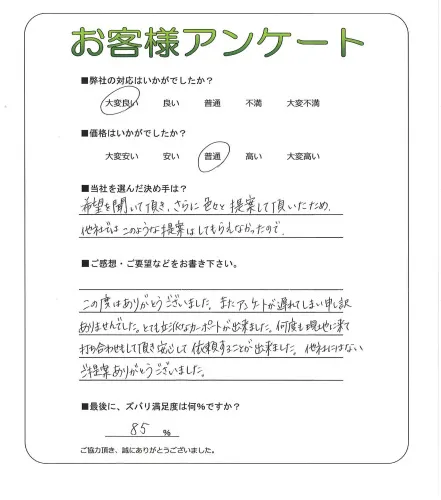 お客様アンケート
■弊社の対応はいかがでしたか？
大変良い 良い 普通 不満 大変不満
■価格はいかがでしたか？
大変安い 安い 普通 高い 大変高い
■当社を選んだ決め手は？
希望を聞いて頂き、さらに色々と提案して頂いたため。
他社ではこのような提案はしてもらえなかったので。
■ご感想・ご要望などをお書き下さい。
この度はありがとうございました。またアンケートが遅れてしまい申し訳
ありませんでした。とても立派なカーポートが出来ました。何度も現地に来て
打ち合わせもして頂き安心して依頼することが出来ました。他社にはない
ご提案ありがとうございました。
■最後に、ズバリ満足度は何％ですか？
85 ％
ご協力頂き、誠にありがとうございました。